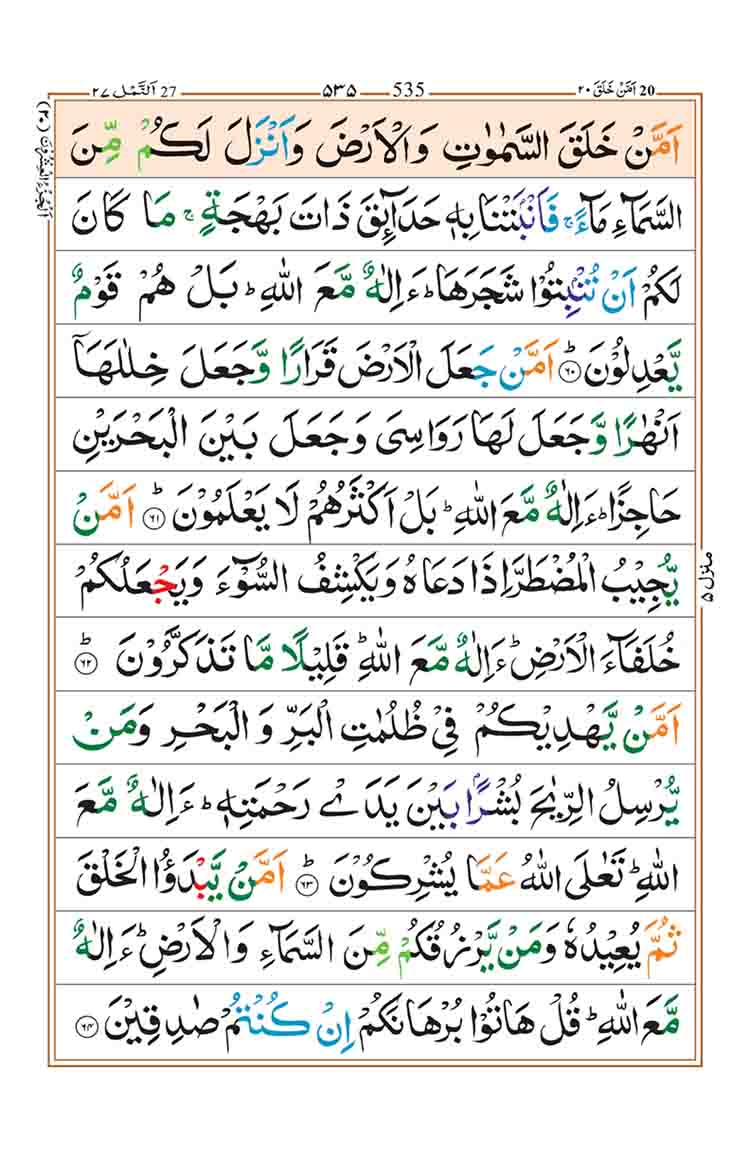 20 اَمَّنْ خَلَقَ ٢٠ 535 ۵۳۵ 27 اَلنَّمْل ٢٧
اَلْجُزْءُ الْعِشْرُوْنَ (٢٠)
اَمَّنْ خَلَقَ السَّمٰوٰتِ وَالْاَرْضَ وَاَنْزَلَ لَكُمْ مِّنَ
السَّمَآءِ مَآءًۚ فَاَنْۢبَتْنَا بِهٖ حَدَآئِقَ ذَاتَ بَهْجَةٍۚ مَا كَانَ
لَكُمْ اَنْ تُنْۢبِتُوْا شَجَرَهَاؕ ءَاِلٰهٌ مَّعَ اللّٰهِؕ بَلْ هُمْ قَوْمٌ
يَّعْدِلُوْنَؕ ﴿٦٠﴾ اَمَّنْ جَعَلَ الْاَرْضَ قَرَارًا وَّجَعَلَ خِلٰلَهَاۤ
اَنْهٰرًا وَّجَعَلَ لَهَا رَوَاسِىَ وَجَعَلَ بَيْنَ الْبَحْرَيْنِ
حَاجِزًاؕ ءَاِلٰهٌ مَّعَ اللّٰهِؕ بَلْ اَكْثَرُهُمْ لَا يَعْلَمُوْنَؕ ﴿٦١﴾ اَمَّنْ
يُّجِيْبُ الْمُضْطَرَّ اِذَا دَعَاهُ وَيَكْشِفُ السُّوْٓءَ وَيَجْعَلُكُمْ
خُلَفَآءَ الْاَرْضِؕ ءَاِلٰهٌ مَّعَ اللّٰهِؕ قَلِيْلًا مَّا تَذَكَّرُوْنَؕ ﴿٦٢﴾
اَمَّنْ يَّهْدِيْكُمْ فِىْ ظُلُمٰتِ الْبَرِّ وَالْبَحْرِ وَمَنْ
يُّرْسِلُ الرِّيٰحَ بُشْرًۢا بَيْنَ يَدَىْ رَحْمَتِهٖؕ ءَاِلٰهٌ مَّعَ
اللّٰهِؕ تَعٰلَى اللّٰهُ عَمَّا يُشْرِكُوْنَؕ ﴿٦٣﴾ اَمَّنْ يَّبْدَؤُا الْخَلْقَ
ثُمَّ يُعِيْدُهٗ وَمَنْ يَّرْزُقُكُمْ مِّنَ السَّمَآءِ وَالْاَرْضِؕ ءَاِلٰهٌ
مَّعَ اللّٰهِؕ قُلْ هَاتُوْا بُرْهَانَكُمْ اِنْ كُنْتُمْ صٰدِقِيْنَ ﴿٦٤﴾
منزل ۵